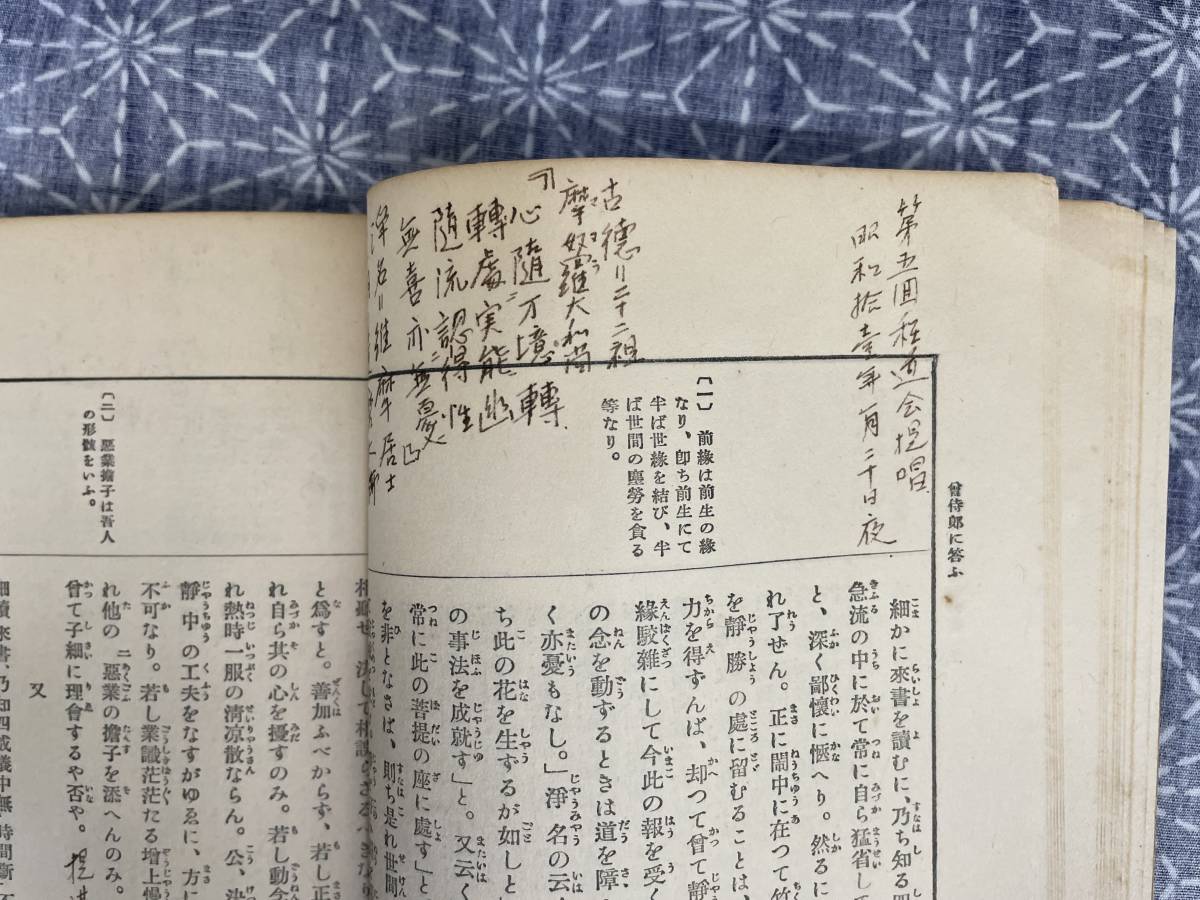 第五回
会提唱
昭和拾壹年一月二十日夜
古德＝二十二祖
摩奴羅大和尚
『心随万境轉
轉處実能幽
随流認得性
無喜亦無憂』
淨名＝維摩居士
曾侍郎に答ふ
〔一〕 前緣は前生の緣
なり、卽ち前生にて
半ば世緣を結び、半
ば世間の塵勞を貪る
等なり。
細かに來書を讀むに、乃ち知る四
急流の中に於て常に自ら猛省して
と、深く鄙懷に愜へり。然るに
れ了ぜん。正に鬧中に在つて竹
を靜勝の處に留むることは、
力を得ずんば、却つて曾て靜
緣駁雜にして今此の報を受く
の念を動するときは道を障
く亦憂もなし。」淨名の云
ち此の花を生ずるが如しと
の事法を成就す」と。又云く
常に此の菩提の座に處す」と
を非となさば、則ち是れ世間
〔二〕 惡業擔子は吾人
の形骸をいふ。
と爲すと。善加ふべからず、若し正
れ自ら其の心を擾すのみ。若し動念
れ熱時一服の淸凉散ならん。公、決
靜中の工夫をなすがゆゑに、方に
不可なり。若し業識茫茫たる增上慢
れ他の二惡業の擔子を添へんのみ。
曾て子細に理會するや否や。
又
細讀來書、乃知四威儀中無時間斷